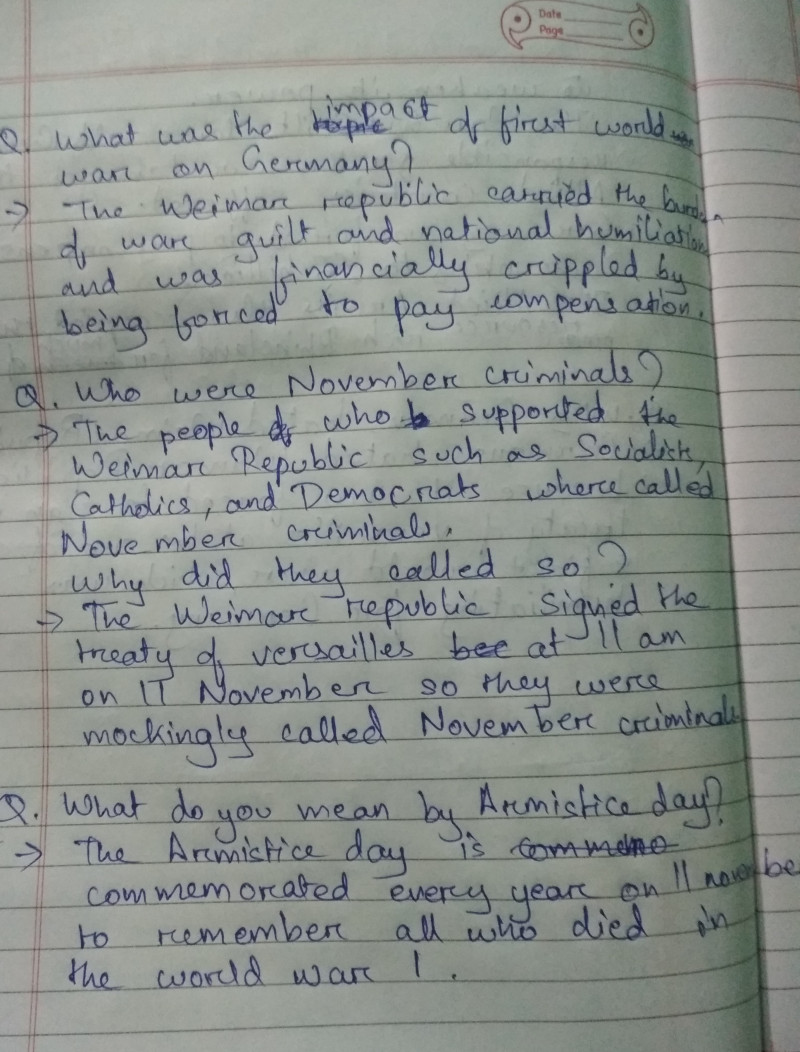 Date
Page
Q. What was the impact of first world
war on Germany?
→ The Weimar republic carried the burden
of war guilt and national humiliation
and was financially crippled by
being forced to pay compensation.
Q. Who were November criminals?
→ The people who supported the
Weimar Republic such as Socialist,
Catholics, and Democrats where called
November criminals.
Why did they called so?
→ The Weimar republic signed the
treaty of versailles at 11 am
on 11 November so they were
mockingly called November criminals
Q. What do you mean by Armistice day?
→ The Armistice day is
commemorated every year on 11 november
to remember all who died in
the world war 1.